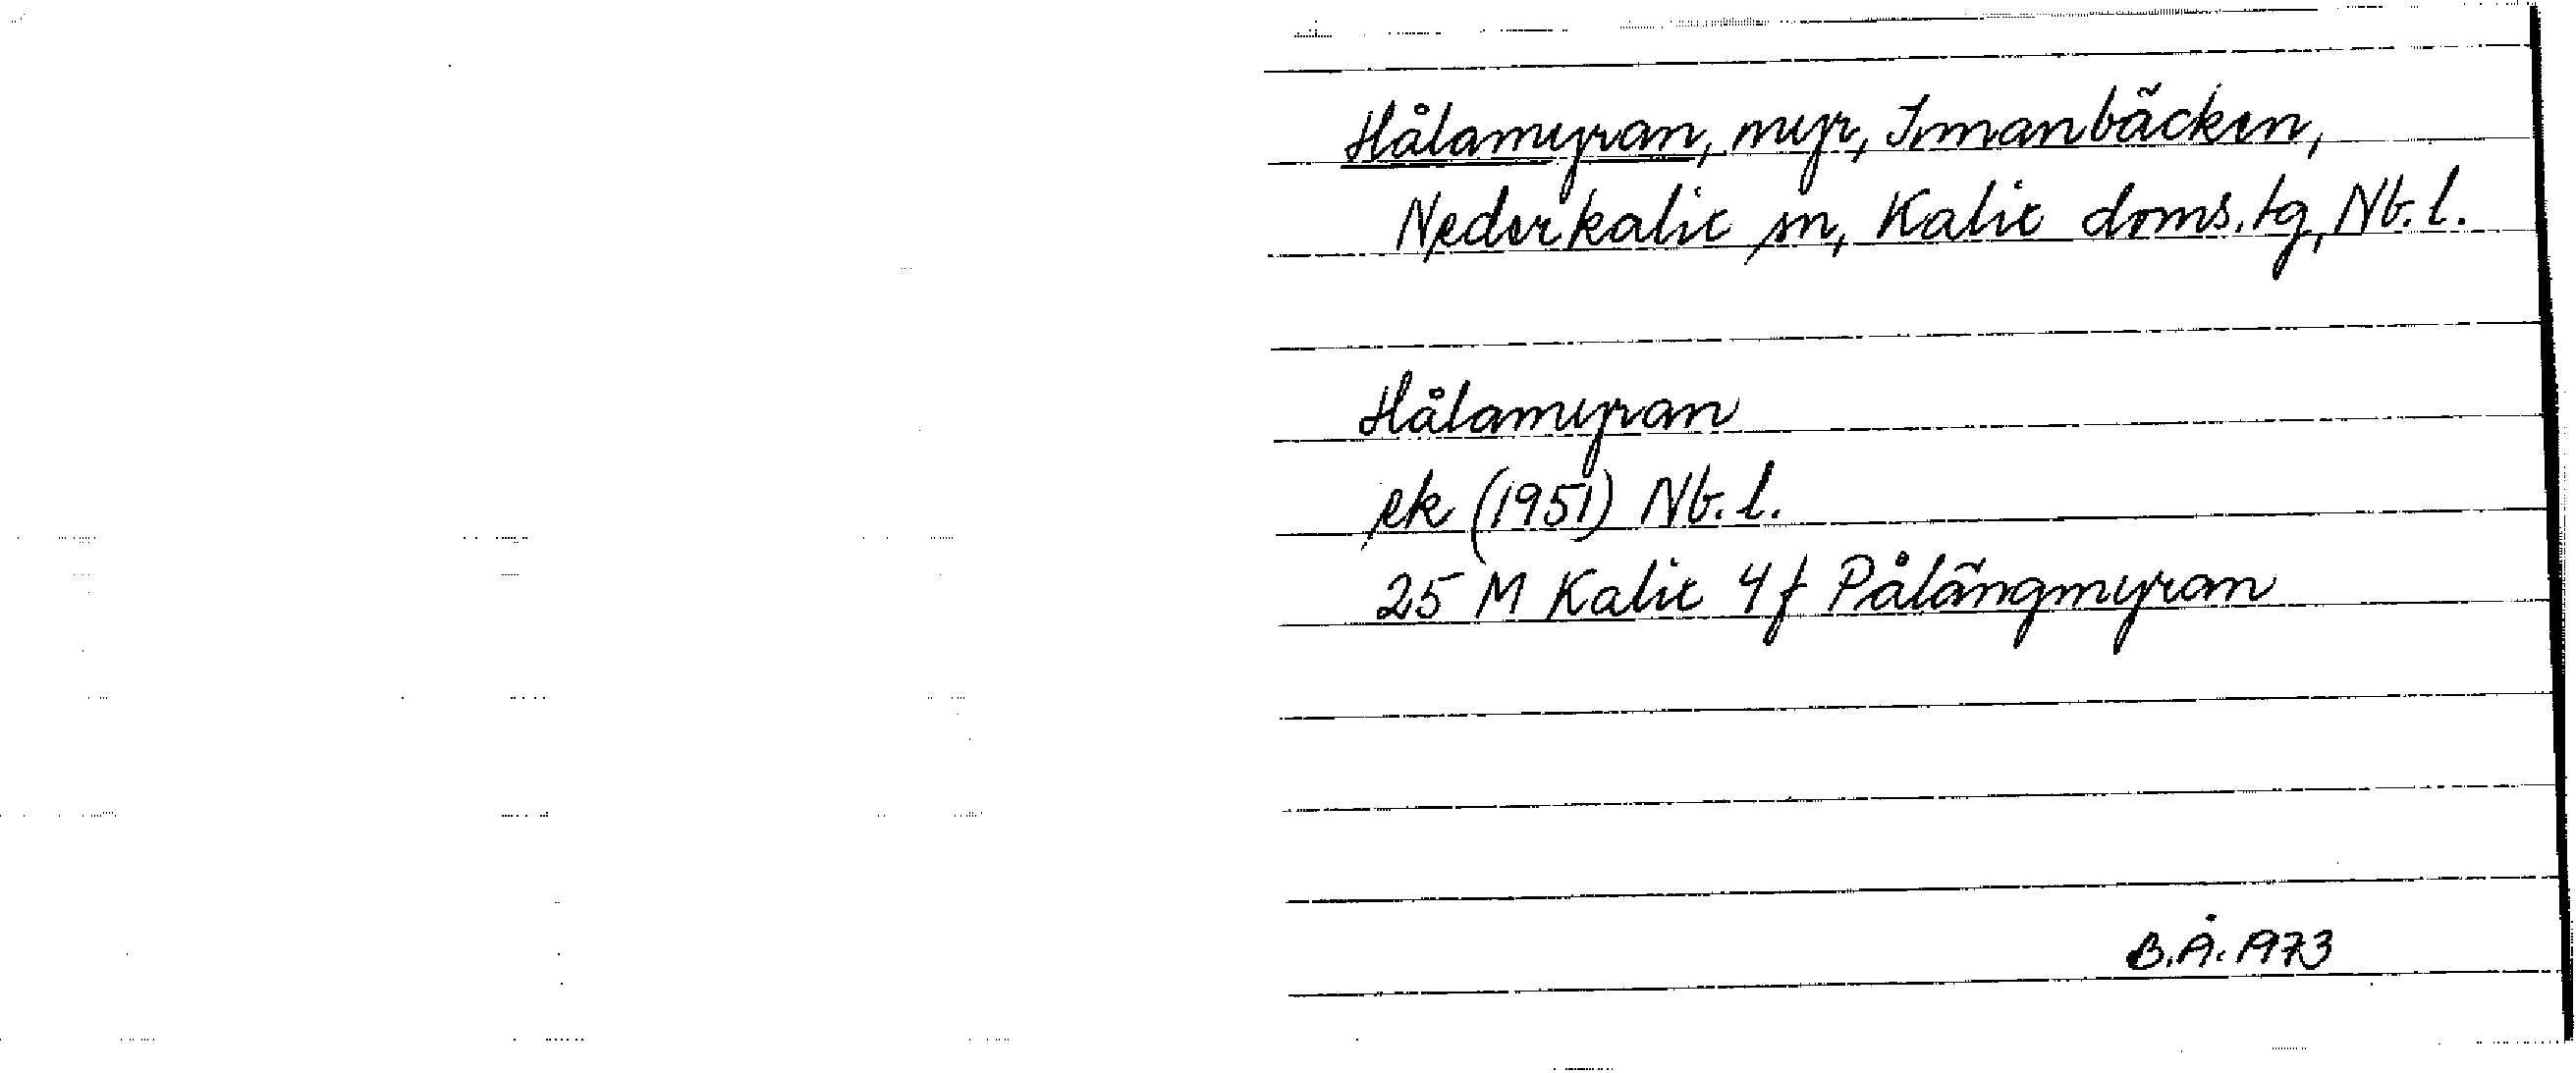 Hålamyran, myr, Innanbäcken,
Nederkalix sn, Kalix doms. tg, Nb. l.
Hålamyran
ek (1951) Nb. l.
25 M Kalix 4 f Pålängmyran
B.Å. 1973